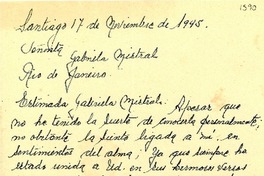 1590
Santiago 17 de Noviembre de 1945.
Señorita
Gabriela Mistral
Río de Janeiro.
Estimada Gabriela Mistral. Apesar que
no he tenido la suerte de conocerla personalmente,
no obstante la siento ligada a mi en
sentimientos del alma, Ya que siempre he
estado unida a Ud. en sus hermosos versos